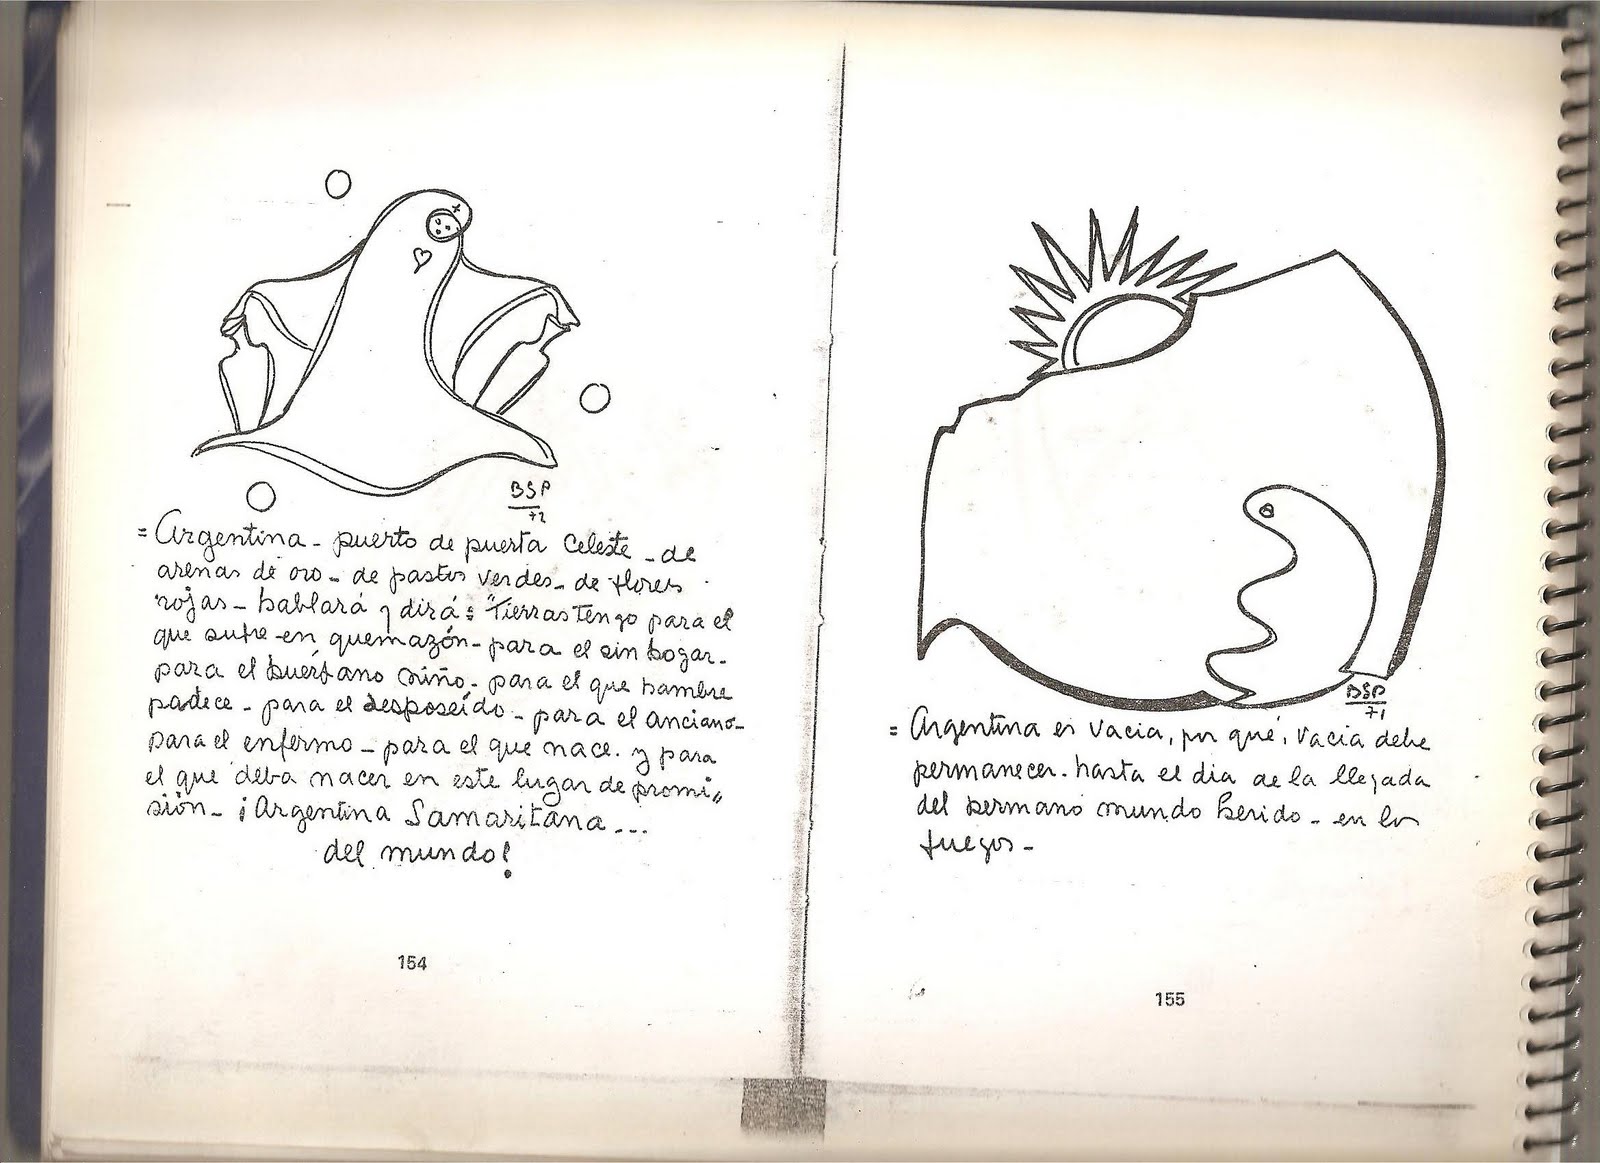 BSP
72
= Argentina - puerto de puerta Celeste - de
arenas de oro - de pastos verdes - de flores
rojas - hablará y dirá: "Tierras tengo para el
que sufre - en quemazón - para el sin hogar -
para el huérfano niño - para el que hambre
padece - para el desposeído - para el anciano -
para el enfermo - para el que nace. y para
el que deba nacer en este lugar de promi"
sión - ¡Argentina Samaritana...
del mundo!
154
BSP
71
= Argentina es vacia, por qué, vacia debe
permanecer. hasta el dia de la llegada
del hermano mundo herido - en los
fuegos -
155